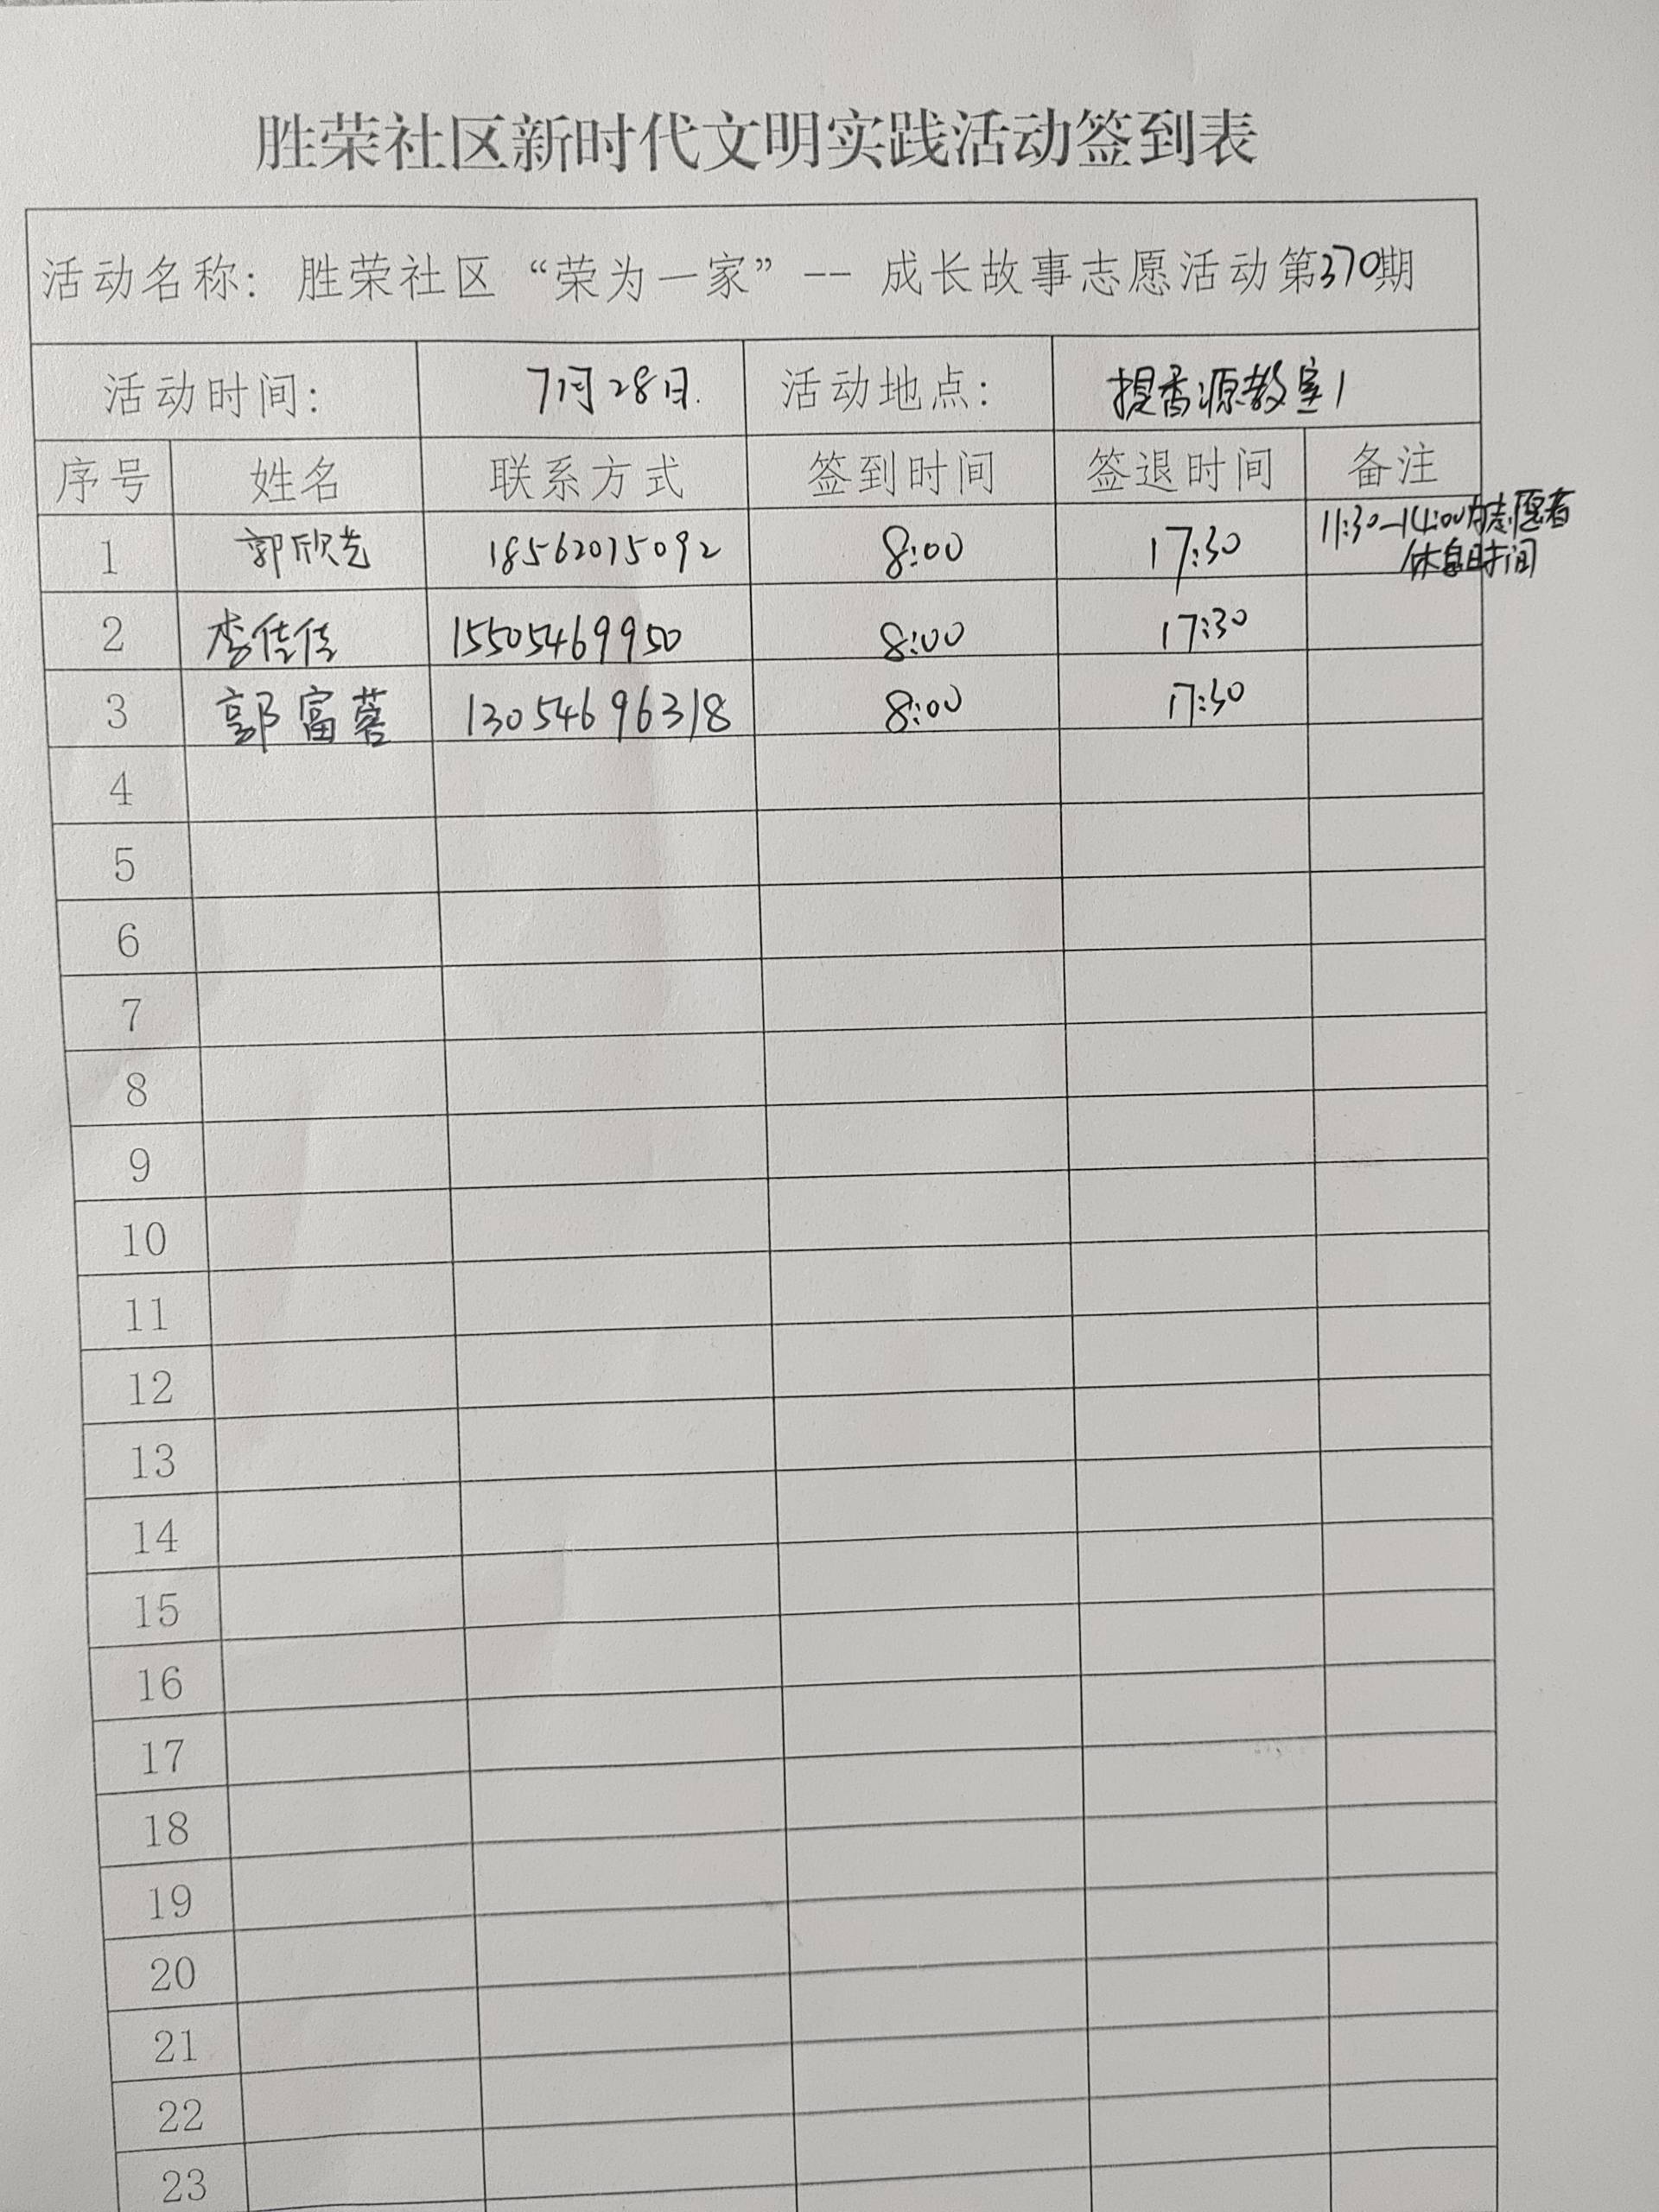 胜荣社区新时代文明实践活动签到表
活动名称：胜荣社区“荣为一家”--成长故事志愿活动第370期
活动时间： 7月28日. 活动地点： 提香源教室1
序号 姓名 联系方式 签到时间 签退时间 备注
1 郭欣艺 18562015092 8:00 17:30 11:30-14:00为志愿者
休息时间
2 李佳佳 15505469950 8:00 17:30
3 郭富蓉 13054696318 8:00 17:30
4
5
6
7
8
9
10
11
12
13
14
15
16
17
18
19
20
21
22
23